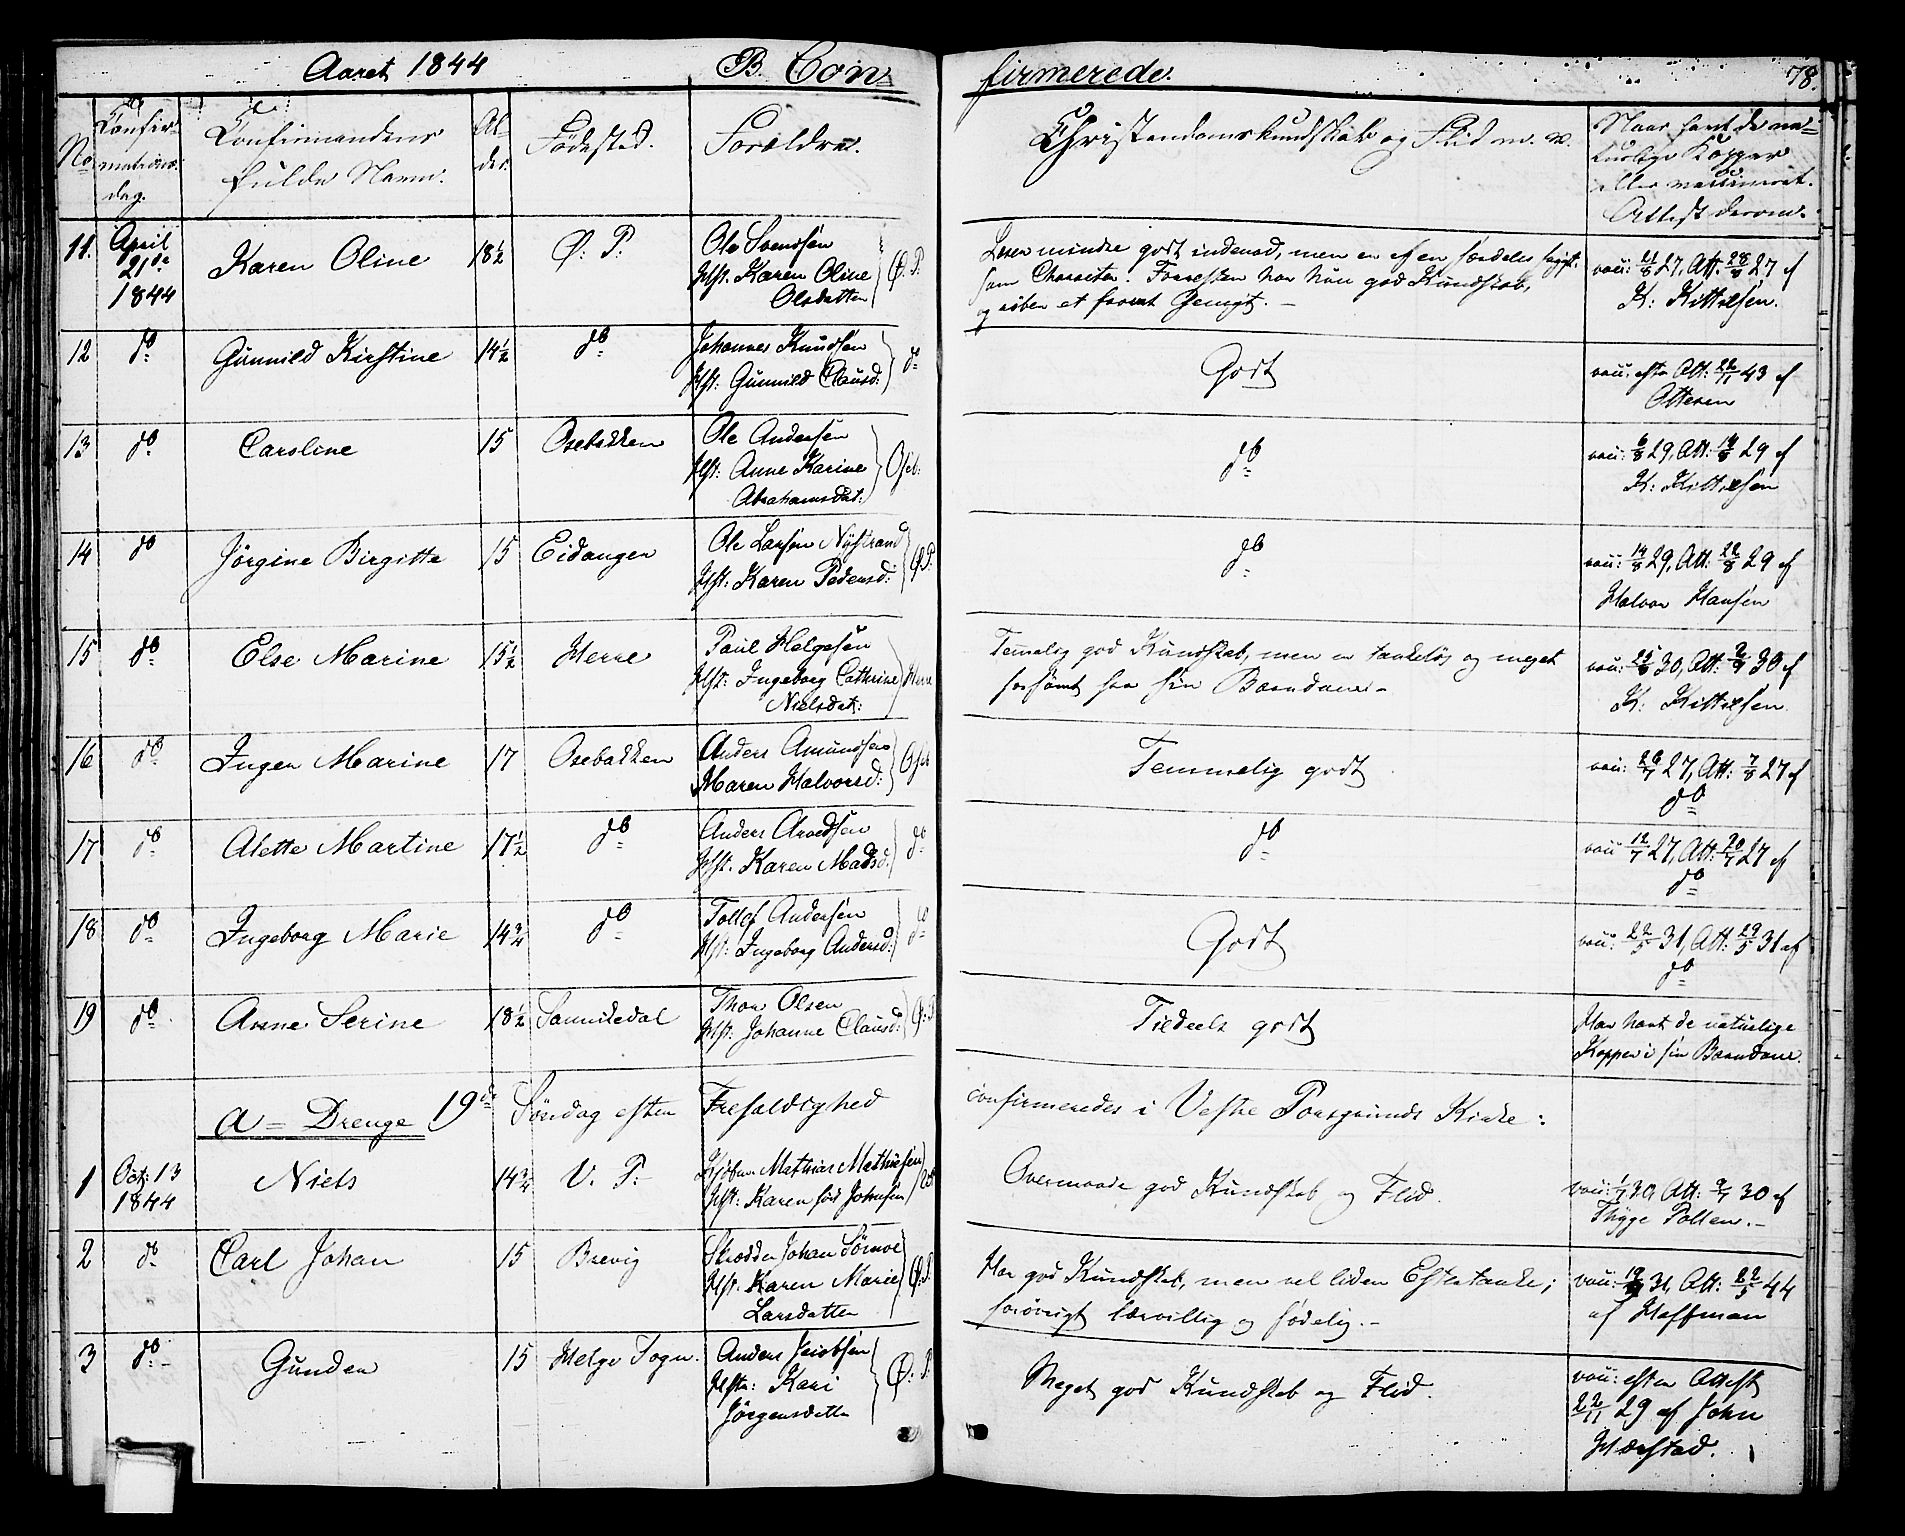 Aaret 1844 B. Con- firmerede. 78.
No Confir- mations- dag. Confirmandens fulde Navn. Al- der. Fødested. Forældre. Christendomskundskab og Flid m. v. Naar havt de na- turlige Kopper eller vaccineret. Attest derom.
11. April 21de 1844 Karen Oline 18½ Ø: P: Ole Svendsen
Hst. Karen Oline Olsdatter Ø: P.
Læser mindre godt indenad, men er af en særdeles
som Character. Forresten har hun god Kundskab,
og røber et fromt Gemyt. –
vac: 21/8 27, Att. 28/8 27 af
K: Kittelsen.
12 do Gunnild Kirstine 14½ do Johannes Knudsen
Hst: Gunnild Clausd: do
Godt
vac: efter Att: 22/11 43 af
Ottesen
13 do Caroline 15 Osebakken Ole Andersen
Hst: Anne Karine
Abrahamsdat: Oseb:
do
vac: 6/8 29, Att: 14/8 29 af
K: Kittelsen
14 do Jørgine Birgitte 15 Eidanger Ole Larsen Nystrand
Hst: Karen Pedersd: Ø: P:
do
vac: 14/8 29, Att: 22/8 29 af
Halvor Hansen
15 do Else Marine 15½ Herre Paul Helgesen
Hst: Ingeborg Cathrine
Nielsdat: Herre
Temmelig god Kundskab, men er tankeløs og meget
forsømt fra sin Barndom –
vac: 30, Att: 30 af
K: Kittelsen.
16 do Inger Marine 17 Osebakken Anders Amundsen
Maren Halvorsd: Oseb
Temmelig godt
vac: 26/7 27, Att: 7/8 27 af
do
17 do Alette Martine 17½ do Anders Arvedsen
Hst. Karen Madsd: do
do
vac 12/7 27, Att: 20/7 27 af
do
18 do Ingeborg Marie 14¾ do Tollef Andersen
Hst: Ingeborg Andersd: do
Godt
vac: 22/5 31, Att: 29/5 31 af
do
19 do Anne Serine 18½ Sannikedal Thor Olsen
Hst: Johanne Clausd: Ø: P
Tildeels godt
Har havt de naturlige
Kopper i sin Barndom.
a – Drenge 19de Søndag efter Trefoldighed confirmeredes i Vestre Porsgrunds Kirke:
1 Oct: 13 1844 Niels 14¾ V. P: Kjøbm Mathias Mathiesen
Hst: Karen fød Johnsen do
Overmaade god Kundskab og Flid.
vac: 1/7 30, Att: 9/7 30 af
Thygge Polsen. –
2 do Carl Johan 15 Brevig Skrædder Johan
Hst: Karen Marie
Larsdatter Ø: P.
Har god Kundskab, men vel liden Eftertanke;
forøvrigt lærvillig og sædelig. –
vac: 31, Att: 22/5 44
af Hoffman
3 do: – Gunder 15 Helge Sogn. Anders Jacobsen
Hstr: Kari
Jørgensdatter Ø: P.
Meget god Kundskab og Flid.
vac: efter Attest
22/11 29 af John
Hærstad.